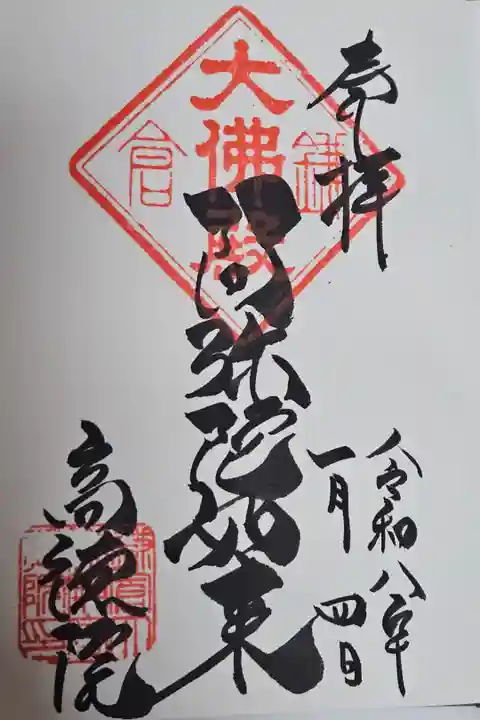 奉拝
令和八年
一月四日
大佛殿
鎌倉
阿弥陀如来
高徳院